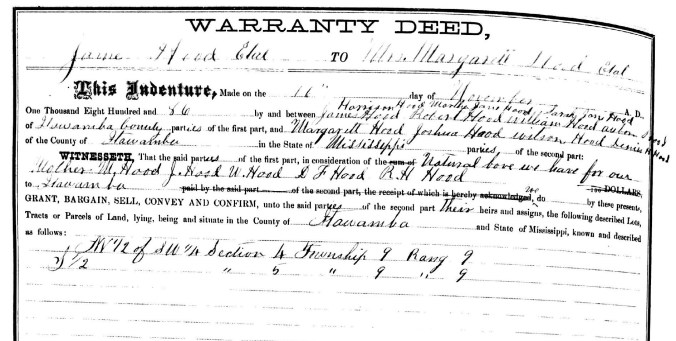 WARRANTY DEED,
Jame Hood Etal TO Mrs. Margarett Hood Etal
This Indenture, Made on the 10" day of November A. D.
Harrison Hood Martha Jane Hood Sarah Jane Hood
One Thousand Eight Hundred and 86 by and between James Hood Robert Hood William Hood Hood
of Itawamba county parties of the first part, and Margarett Hood Joshua Hood Wilson Hood Hood
of the County of Itawamba in the State of Mississippi parties, of the second part:
WITNESSETH, That the said parties of the first part, in consideration of the sum of Natural love we have for our
Mother M Hood J. Hood W. Hood D F Hood R. H Hood DOLLARS,
to Itawamba paid by the said part of the second part, the receipt of which is hereby acknowledged, we do by these present,
GRANT, BARGAIN, SELL, CONVEY AND CONFIRM, unto the said paryes of the second part Their heirs and assigns, the following described Lots,
Tracts or Parcels of Land, lying, being and situate in the County of Itawamba and State of Mississippi, known and described
as follows:
1/2 of SW 1/4 Section 4 Township 9 Rang 9
1/2 " 5 " 9 " 9